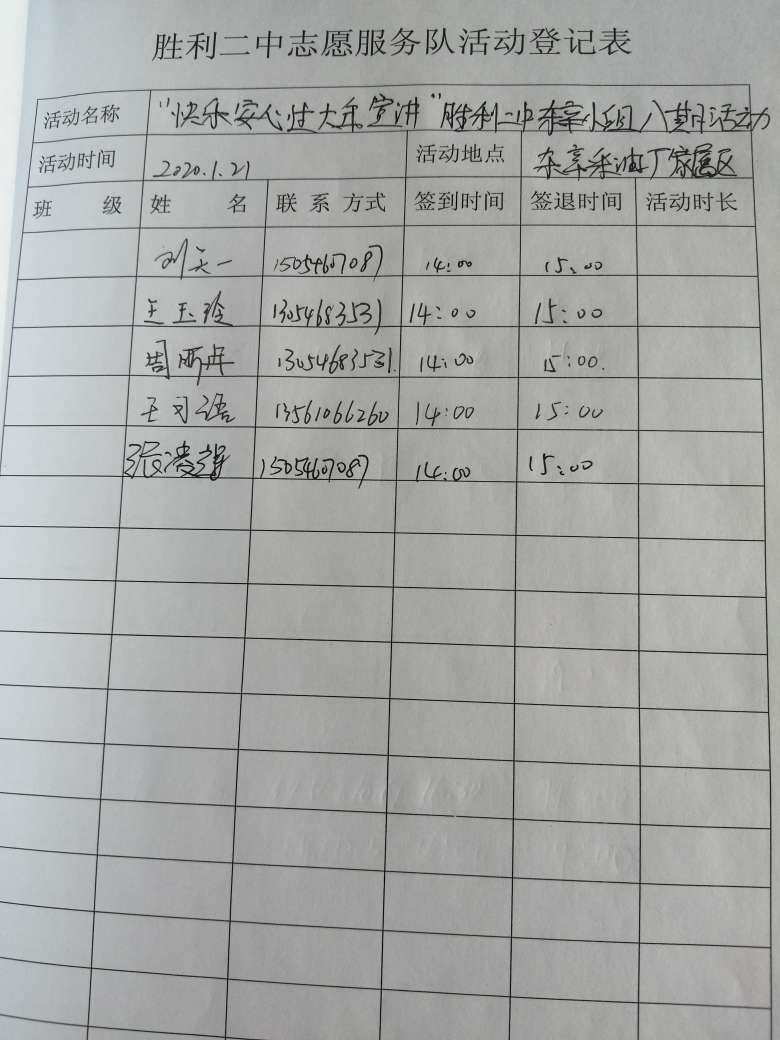 胜利二中志愿服务队活动登记表
活动名称 "快乐安心过大年宣讲"胜利二中东辛小组八其月活动
活动时间 2020.1.21 活动地点 东辛采油厂家属区
班 级 姓 名 联系方式 签到时间 签退时间 活动时长
刘天一 15054607087 14:00 15:00
王玉玲 13054683531 14:00 15:00
周 13054683531. 14:00 15:00.
王可语 13561066260 14:00 15:00
张凌 15054607087 14:00 15:00